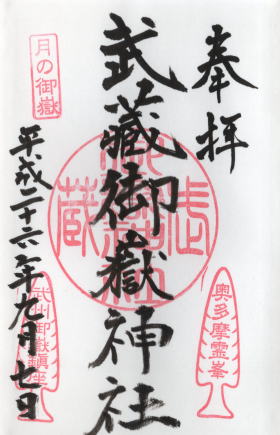 奉拝
奥多摩霊峯
武蔵御嶽神社
月の御嶽
平成二十六年九月七日
武州御嶽鎮座